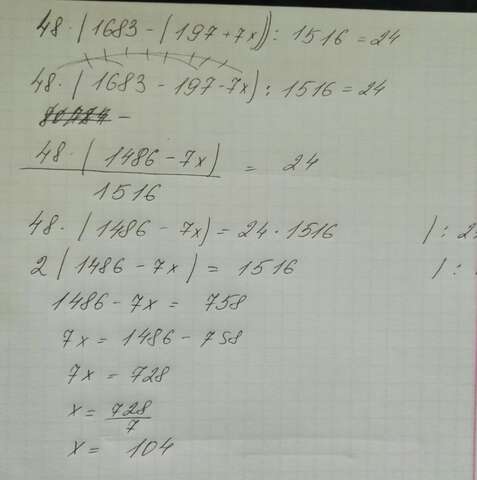 48·(1683-(197+7x)):1516=24
48·(1683-197-7x):1516=24
-
48·(1486-7x)
———— = 24
1516
48·(1486-7x)=24·1516 | : 2
2(1486-7x)=1516 | :
1486-7x=758
7x=1486-758
7x=728
x=728/7
x=104